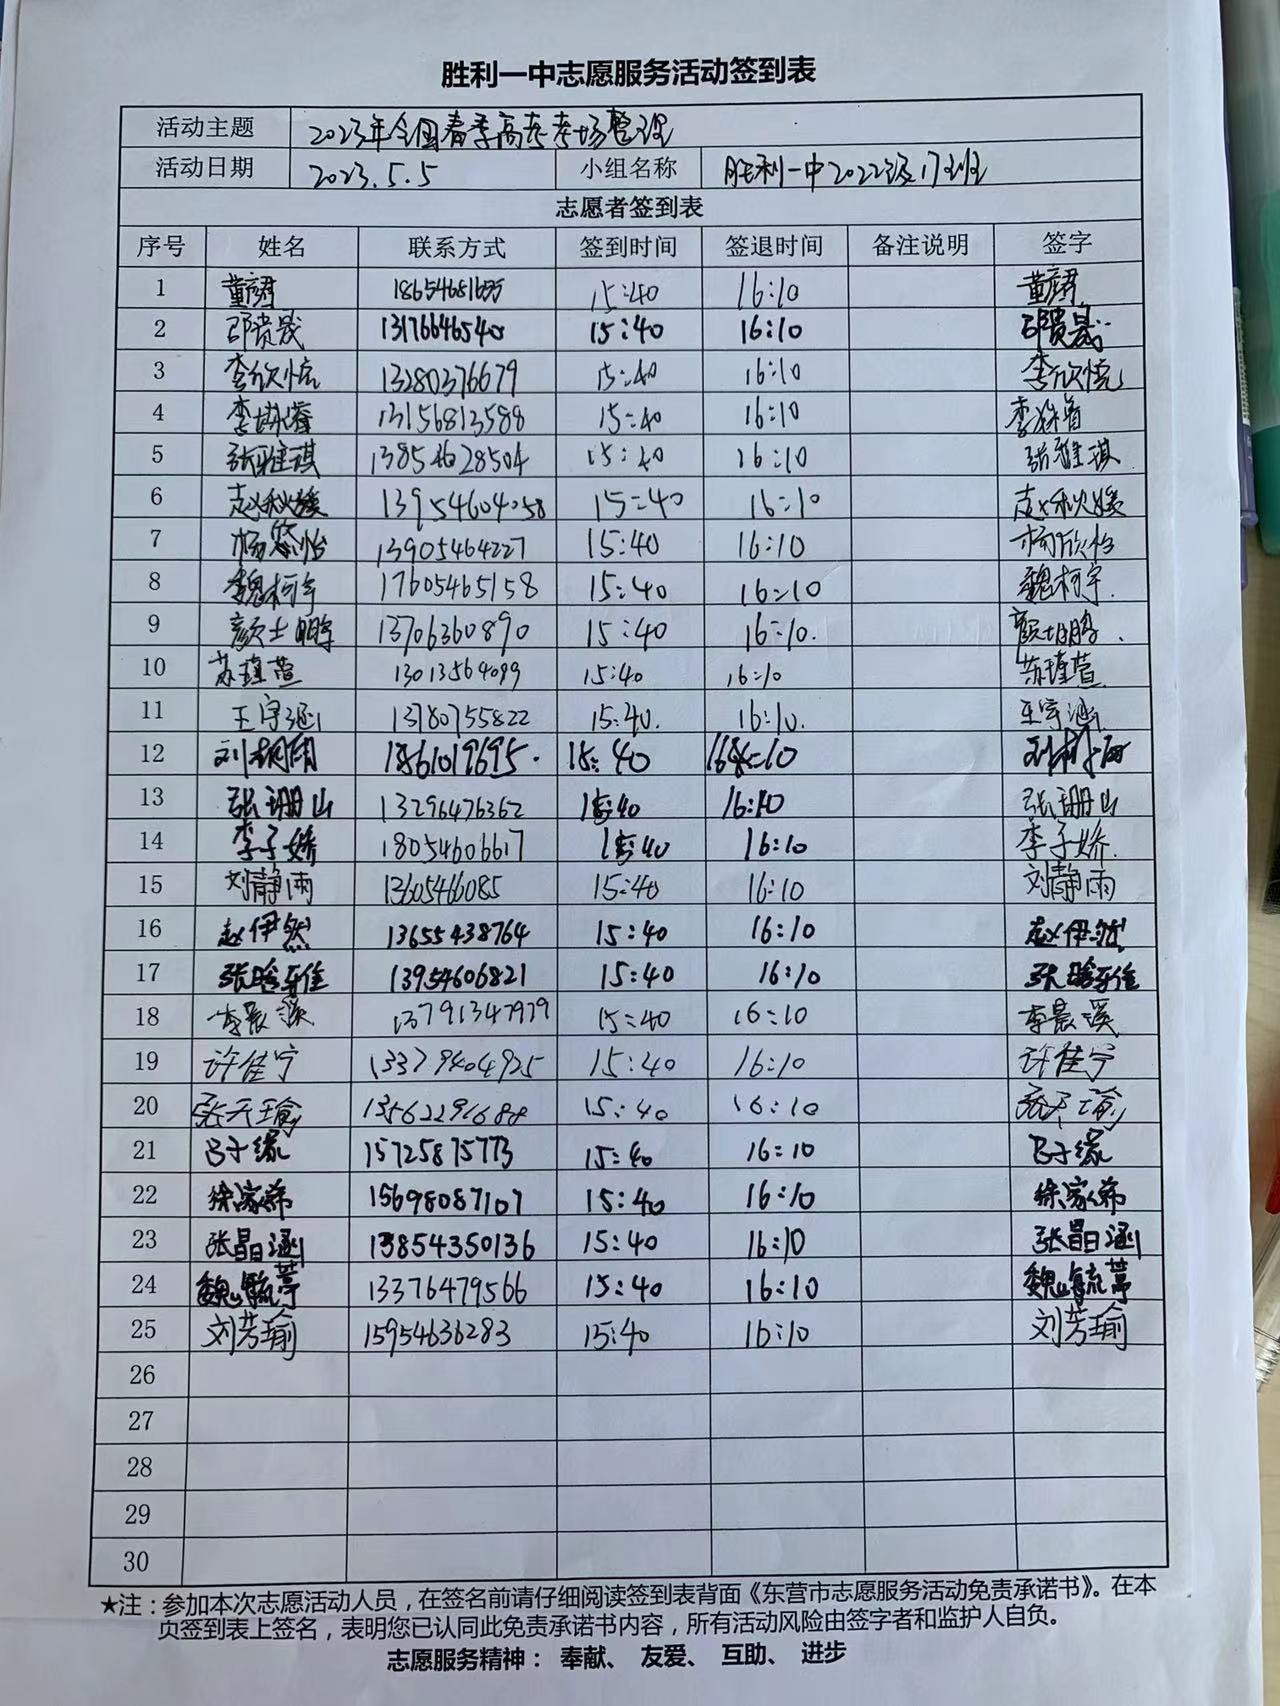 胜利一中志愿服务活动签到表
活动主题 2023年全国春季高考考场整理
活动日期 2023.5.5 小组名称 胜利一中2022级17班
志愿者签到表
序号 姓名 联系方式 签到时间 签退时间 备注说明 签字
1 15:40 16:10
2 邵贵晟 13176646540 15:40 16:10 邵贵晟
3 李欣悦 13280376679 15:40 16:10 李欣悦
4 13156813588 15:40 16:10
5 张雅琪 13854628504 15:40 16:10 张雅琪
6 赵秋媛 13954604058 15:40 16:10 赵秋媛
7 13905464227 15:40 16:10 杨欣怡
8 魏柯宇 17605465158 15:40 16:10 魏柯宇
9 颜士鹏 13706360890 15:40 16:10. 颜士鹏
10 苏瑾萱 13013564099 15:40 16:10 苏瑾萱
11 王宇涵 13780755822 15:40. 16:10. 王宇涵
12 18561019695. 15:40 16:10
13 张珊山 13296476362 15:40 16:10 张珊山
14 李子娇 18054606617 15:40 16:10 李子娇.
15 刘静雨 13605466085 15:40 16:10 刘静雨
16 赵伊然 13655438764 15:40 16:10 赵伊然
17 13954606821 15:40 16:10
18 李晨溪 13791347979 15:40 16:10 李晨溪
19 许佳宁 13379404925 15:40 16:10 许佳宁
20 张天瑜 13562291688 15:40 16:10 张天瑜
21 吕子缘 15725875773 15:40 16:10 吕子缘
22 徐家希 15698087107 15:40 16:10 徐家希
23 张晶涵 13854350136 15:40 16:10 张晶涵
24 魏毓葶 13376479566 15:40 16:10 魏毓葶
25 刘芳瑜 15954636283 15:40 16:10 刘芳瑜
26
27
28
29
30
★注：参加本次志愿活动人员，在签名前请仔细阅读签到表背面《东营市志愿服务活动免责承诺书》。在本
页签到表上签名，表明您已认同此免责承诺书内容，所有活动风险由签字者和监护人自负。
志愿服务精神： 奉献、 友爱、 互助、 进步